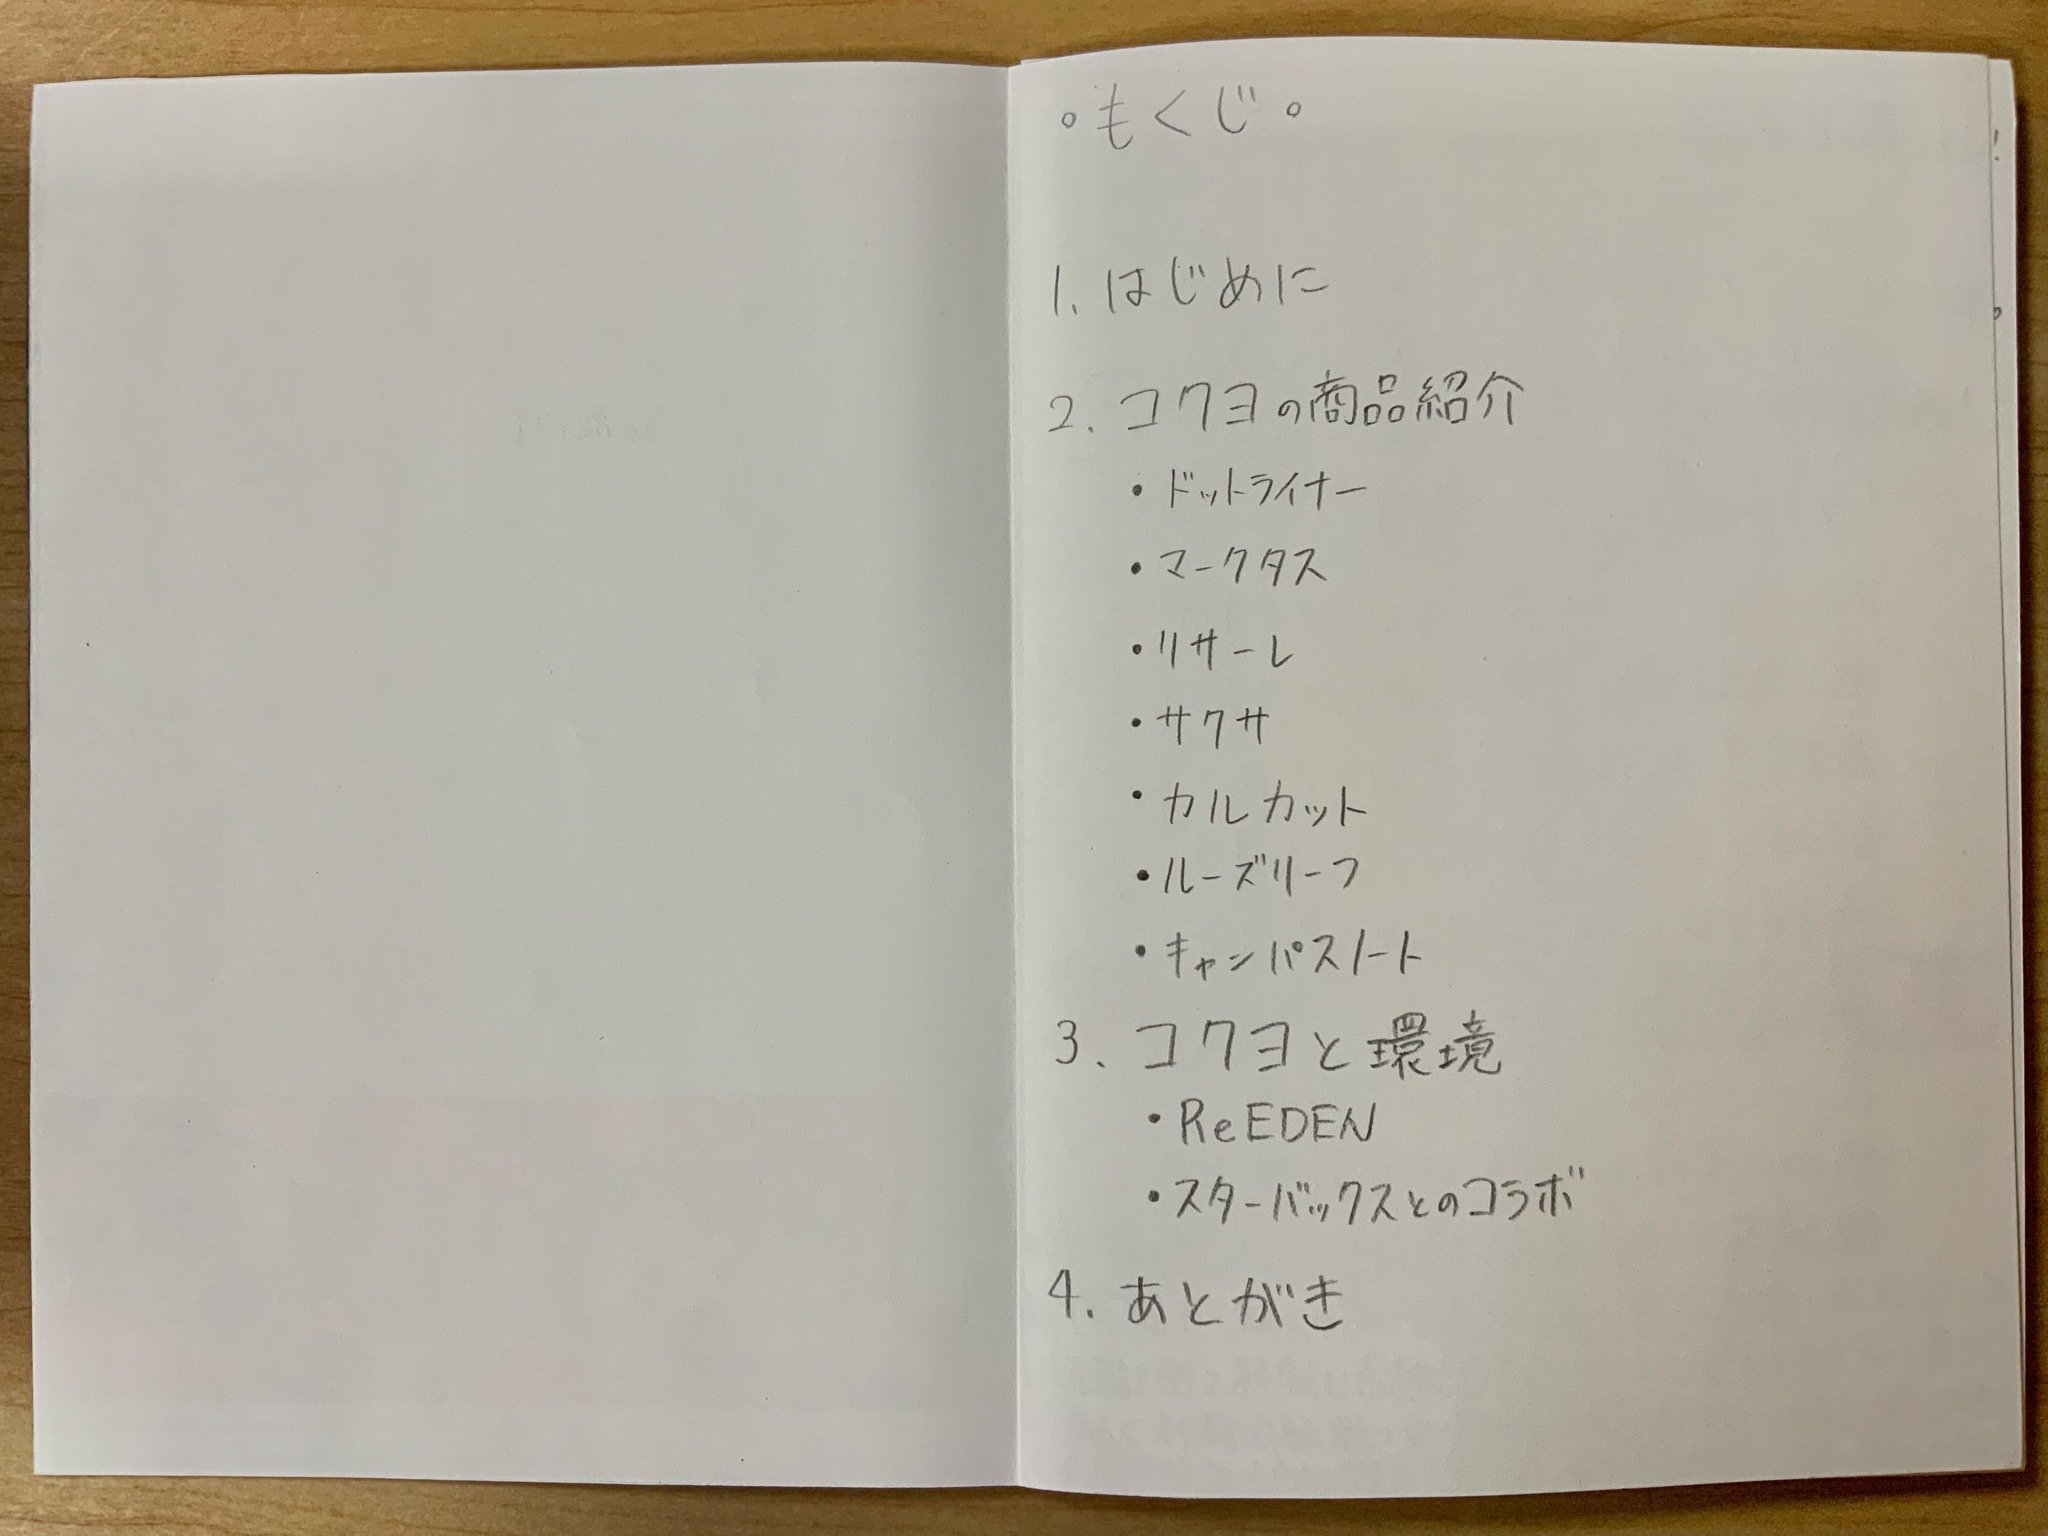 ○もくじ○
1. はじめに
2. コクヨの商品紹介
・ドットライナー
・マークタス
・リサーレ
・サクサ
・カルカット
・ルーズリーフ
・キャンパスノート
3. コクヨと環境
・ReEDEN
・スターバックスとのコラボ
4. あとがき